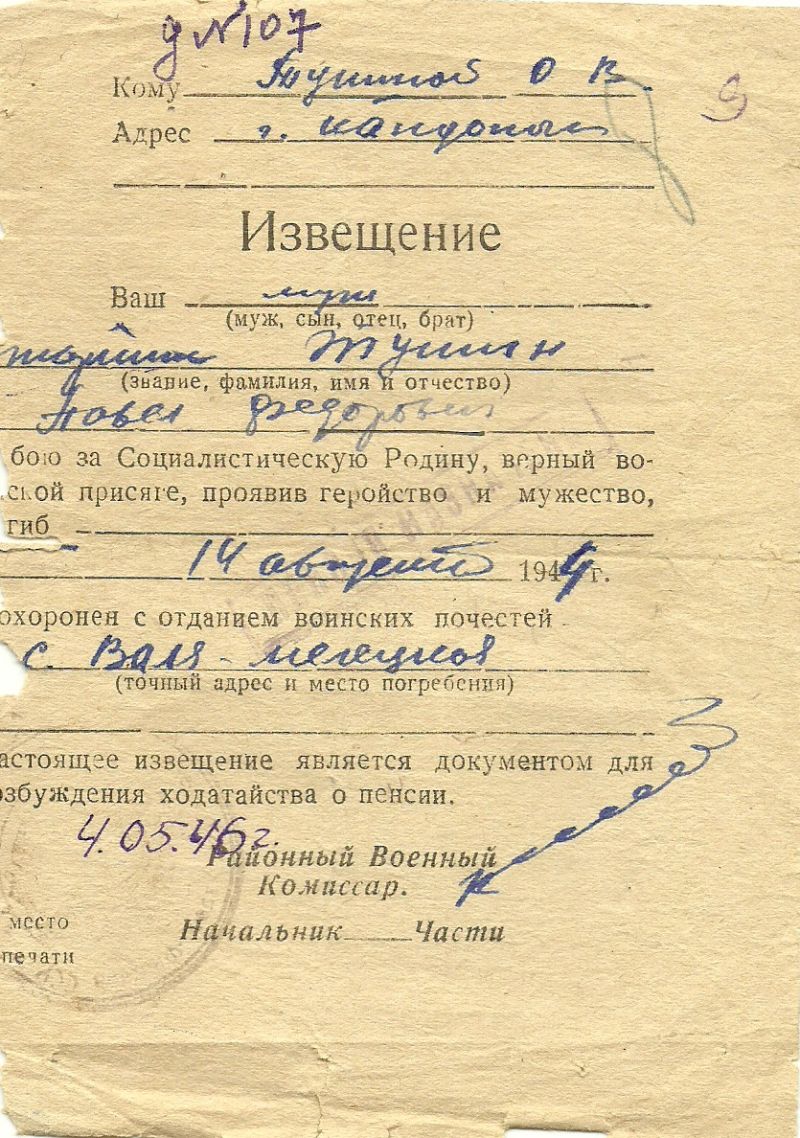 д №107
9
Кому Тушиной О В.
Адрес г.
Извещение
Ваш муж
(муж, сын, отец, брат)
Тушин
(звание, фамилия, имя и отчество)
Павел Федорович
бою за Социалистическую Родину, верный во-
ской присяге, проявив геройство и мужество,
гиб
14 августа 1944 г.
охоронен с отданием воинских почестей
с. Валя-
(точный адрес и место погребения)
астоящее извещение является документом для
озбуждения ходатайства о пенсии.
4.05.46 г.
Районный Военный
Комиссар.
место
печати
Начальник Части